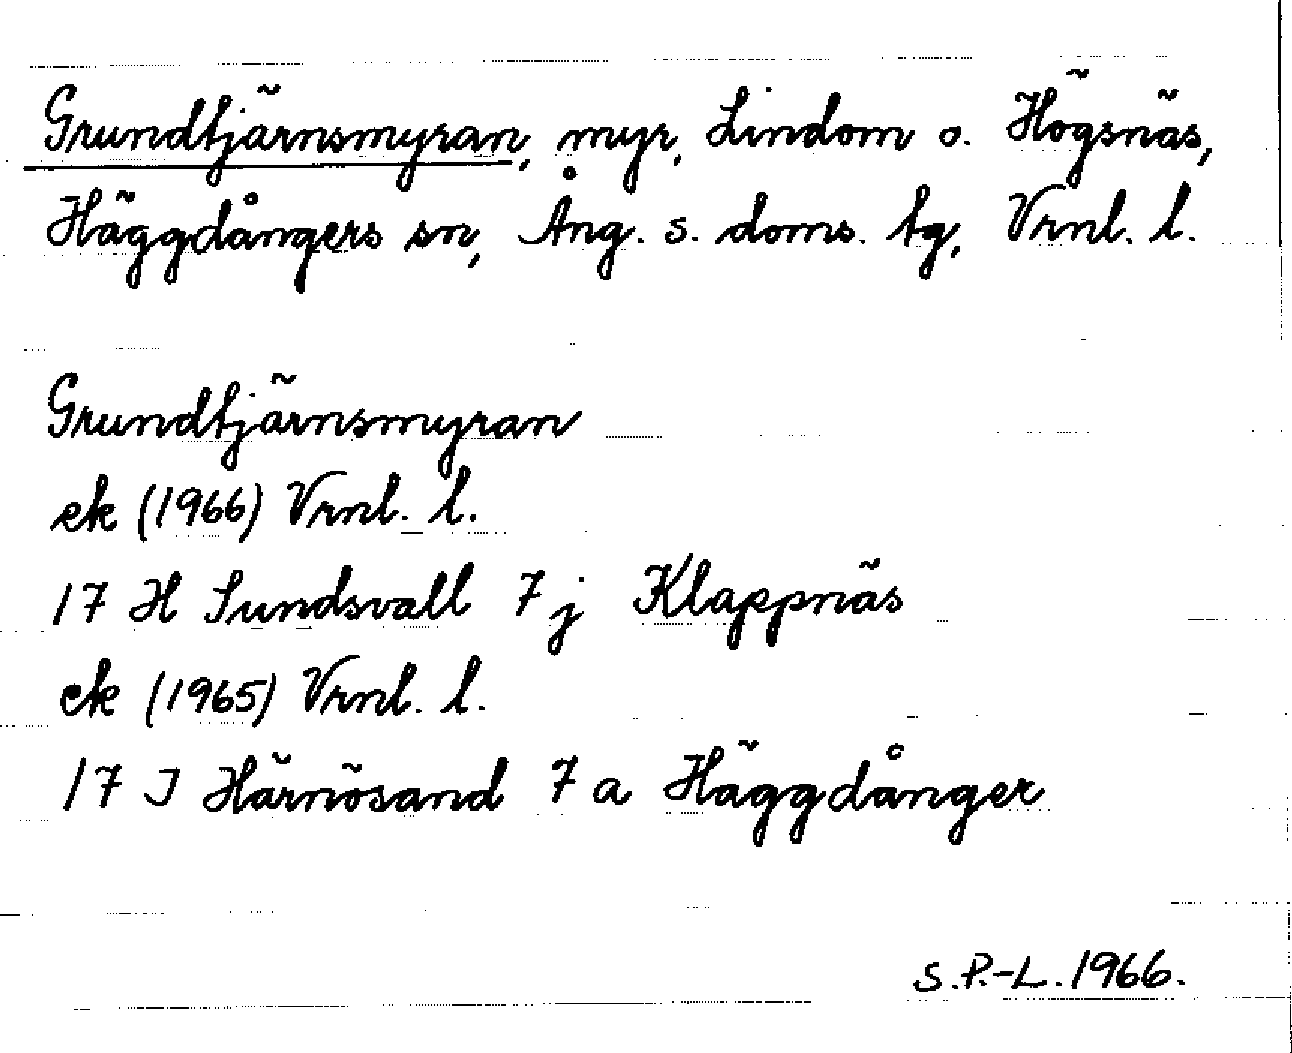 Grundtjärnsmyran, myr, Lindom o. Högsnäs,
Häggdångers sn, Ång. s. doms. tg, Vrnl. l.
Grundtjärnsmyran
ek (1966) Vrnl. l.
17 H Sundsvall 7 j Klappnäs
ek (1965) Vrnl. l.
17 J Härnösand 7 a Häggdånger
S.P.-L. 1966.